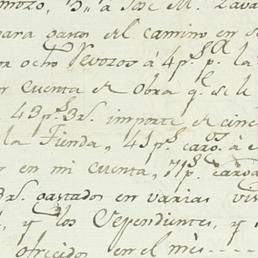 mozo, 3„ á José M. Zava
para gastos del camino en s
or ocho Revozos á 4 p.s p.a la
r cuenta de Obra q.e se l
43 p.s 3 r.s importe de cinc
la Tienda, 41 p.s cargo.os á
r en mi cuenta, 71 p.s cargo
3 r.s gastados en varias vis
, y los Dependientes, y
ofrecidos en el mes